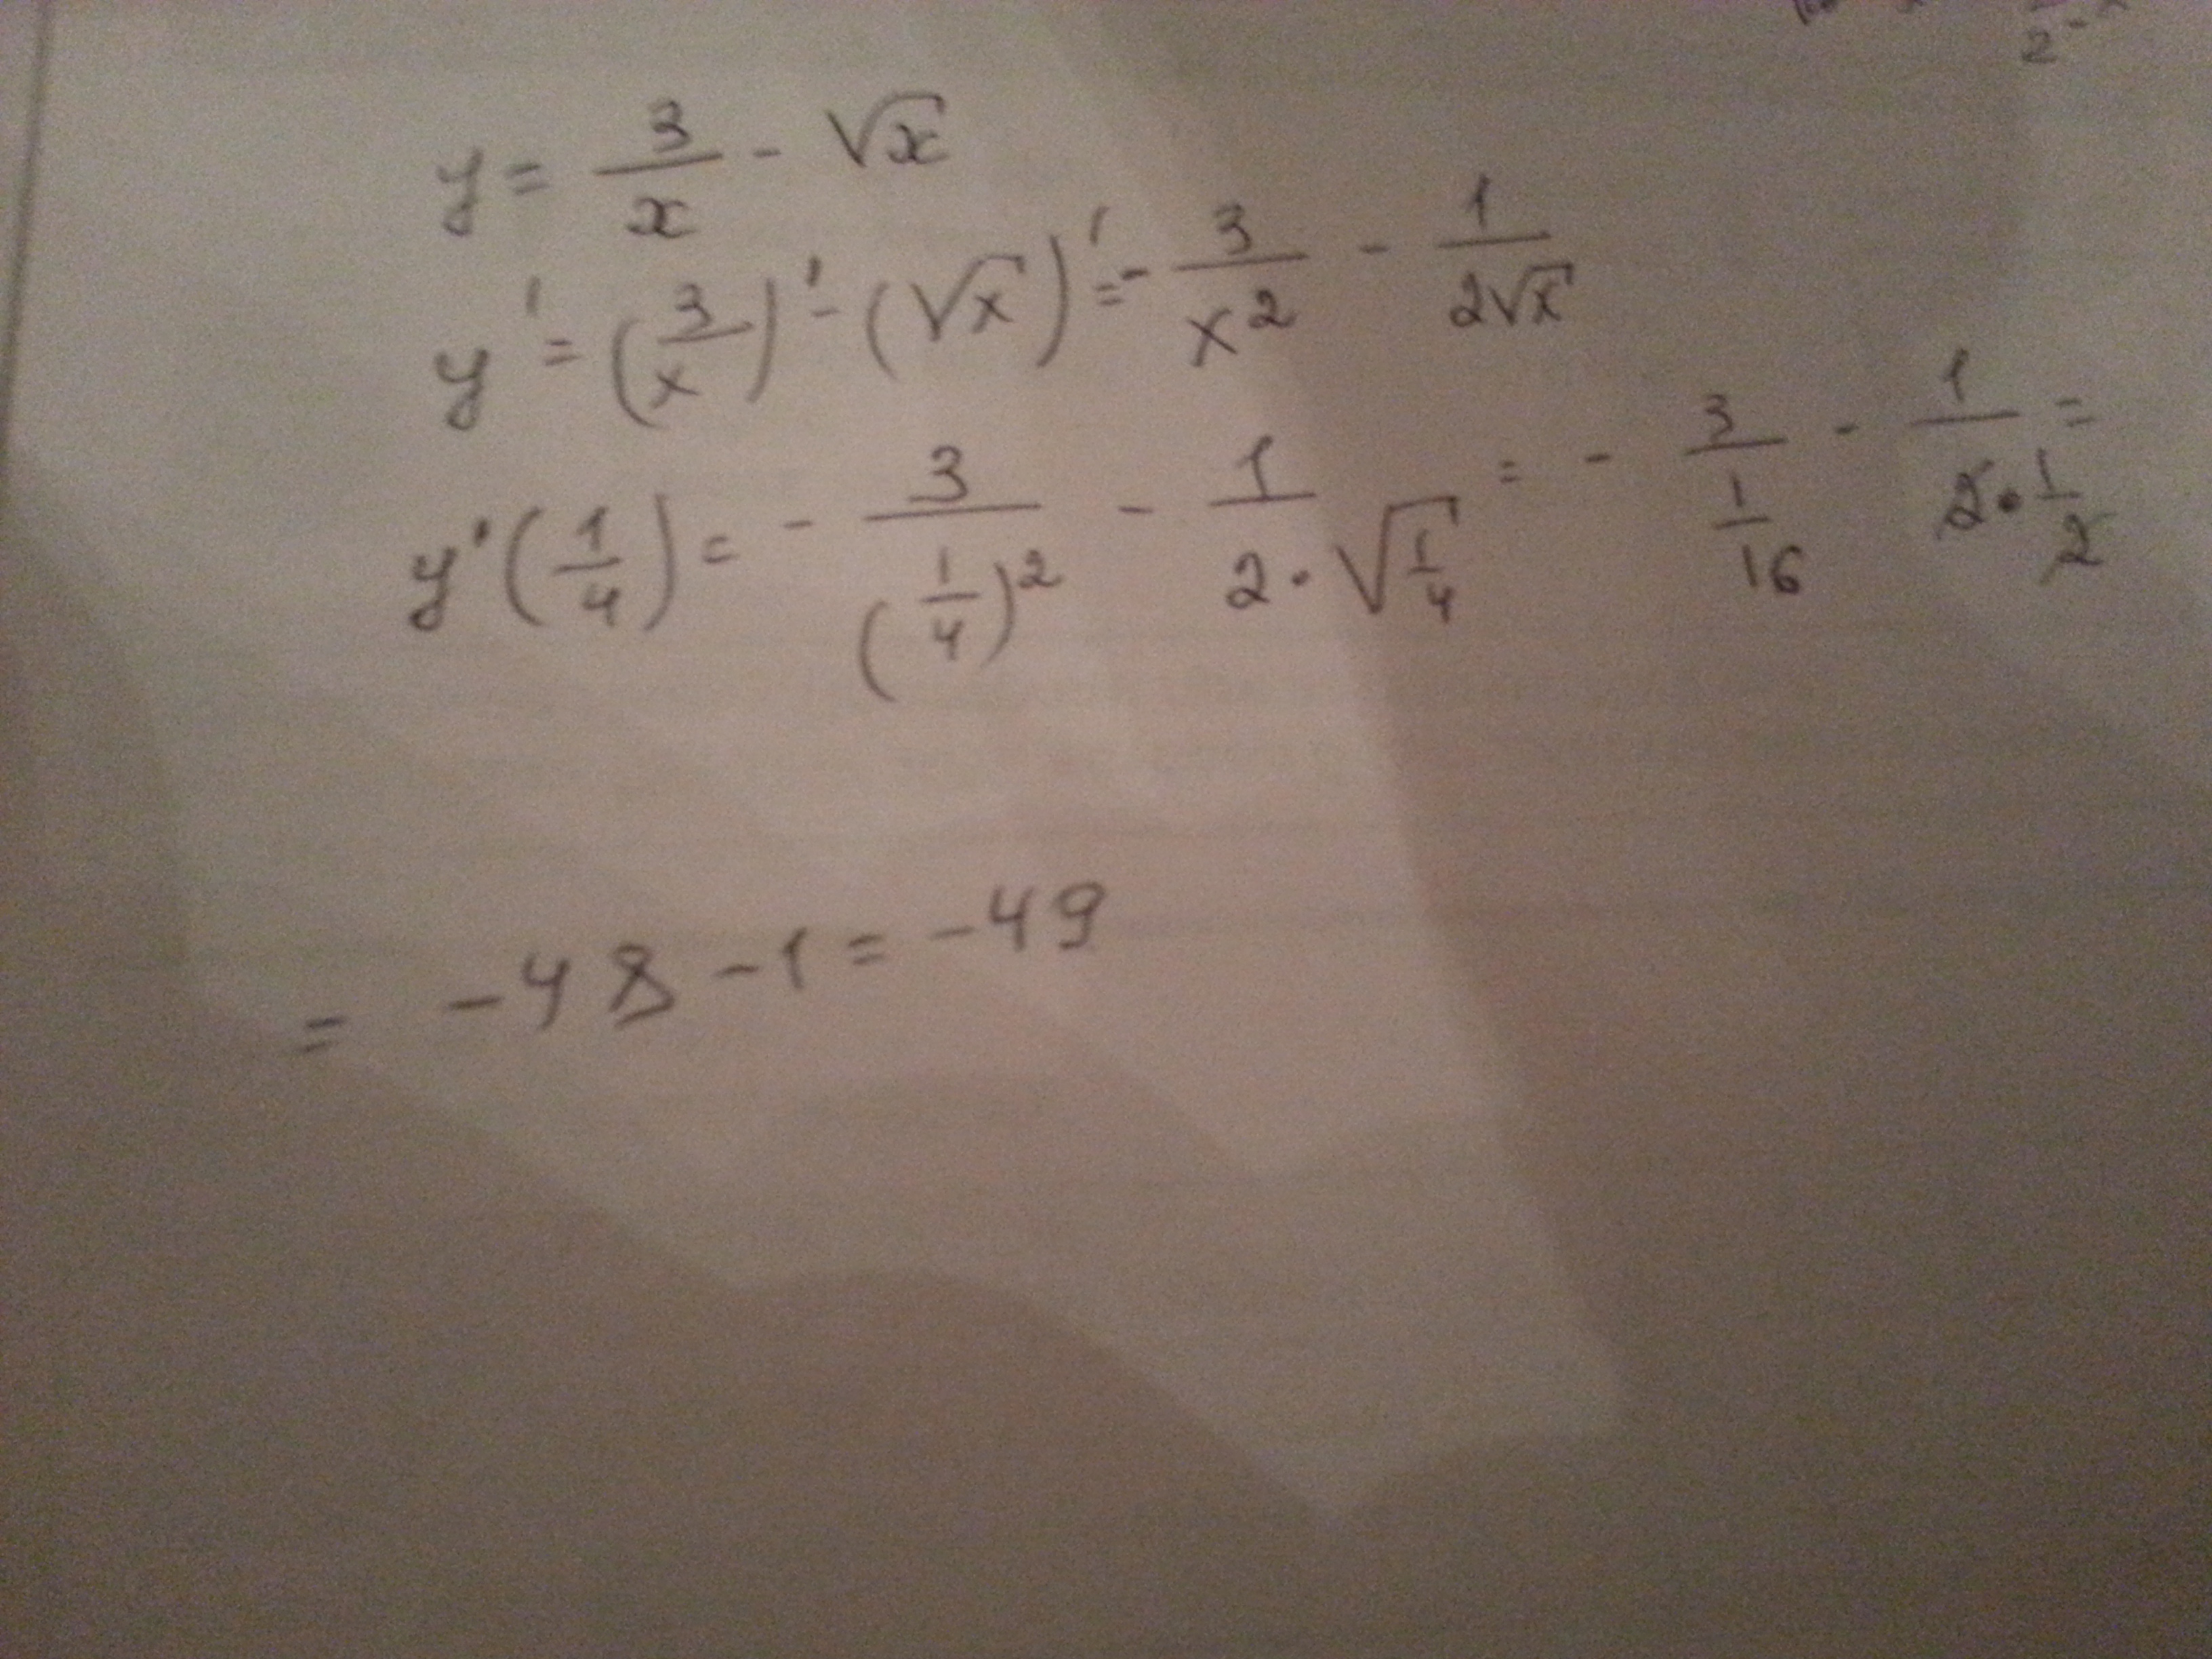 y = 3/x - √x
y' = (3/x)' - (√x)' = - 3/x² - 1/(2√x)
y'(1/4) = - 3/(1/4)² - 1/(2·√(1/4)) = - 3/(1/16) - 1/(2·1/2) =
= -48 - 1 = -49